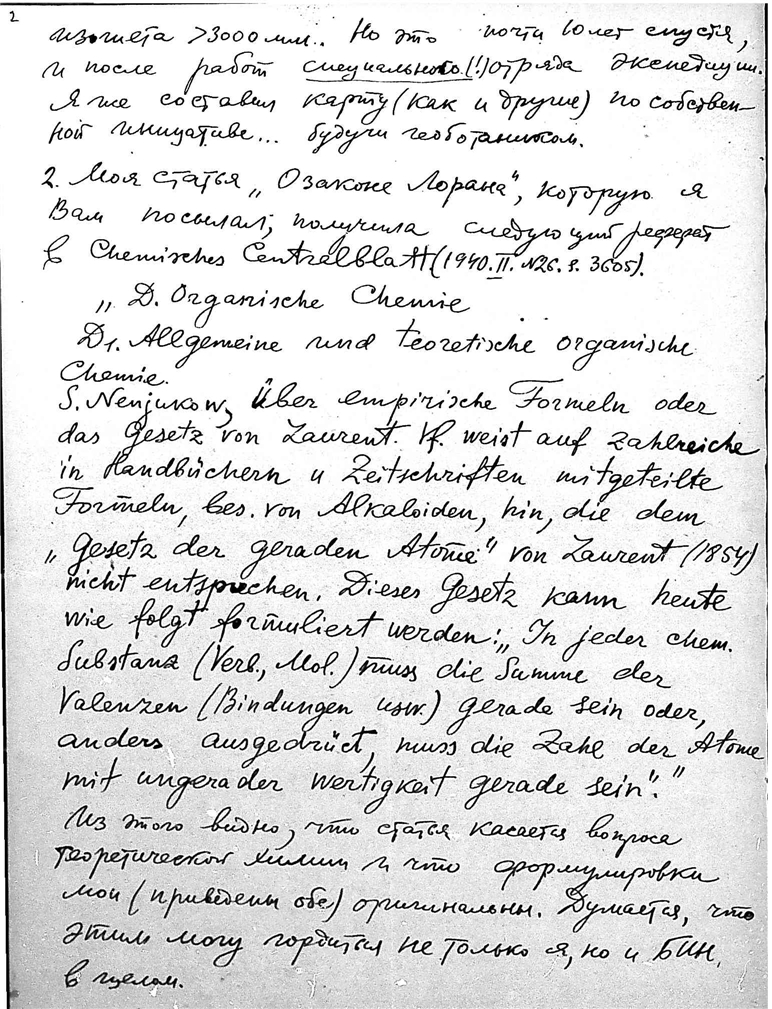 2
изогиета >3000 мм.. Но это почти 10 лет спустя,
и после работ специального (!) отряда экспедиции.
Я же составил карту (как и другие) по собствен-
ной инициативе... будучи геоботаником.
2. Моя статья „О законе Лорана", которую я
Вам посылал, получила следующий реферат
в Chemisches Centralblatt (1940. II. №26. s. 3605).
„D. Organische Chemie
D1. Allgemeine und teoretische organische
Chemie.
S. Nenjukow, Über empirische Formeln oder
das Gesetz von Laurent. Vf. weist auf zahlreiche
in Handbüchern u Zeitschriften mitgeteilte
Formeln, bes. von Alkaloiden, hin, die dem
„Gesetz der geraden Atome" von Laurent (1854)
nicht entsprechen. Dieses Gesetz kann heute
wie folgt formuliert werden: „In jeder chem.
Substanz (Verb., Mol.) muss die Summe der
Valenzen (Bindungen usw.) gerade sein oder,
anders ausgedrückt, muss die Zahl der Atome
mit ungerader wertigkeit gerade sein"."
Из этого видно, что статья касается вопроса
теоретической химии и что формулировки
мои (приведены обе) оригинальны. Думается, что
этим могу гордиться не только я, но и БИН
в целом.